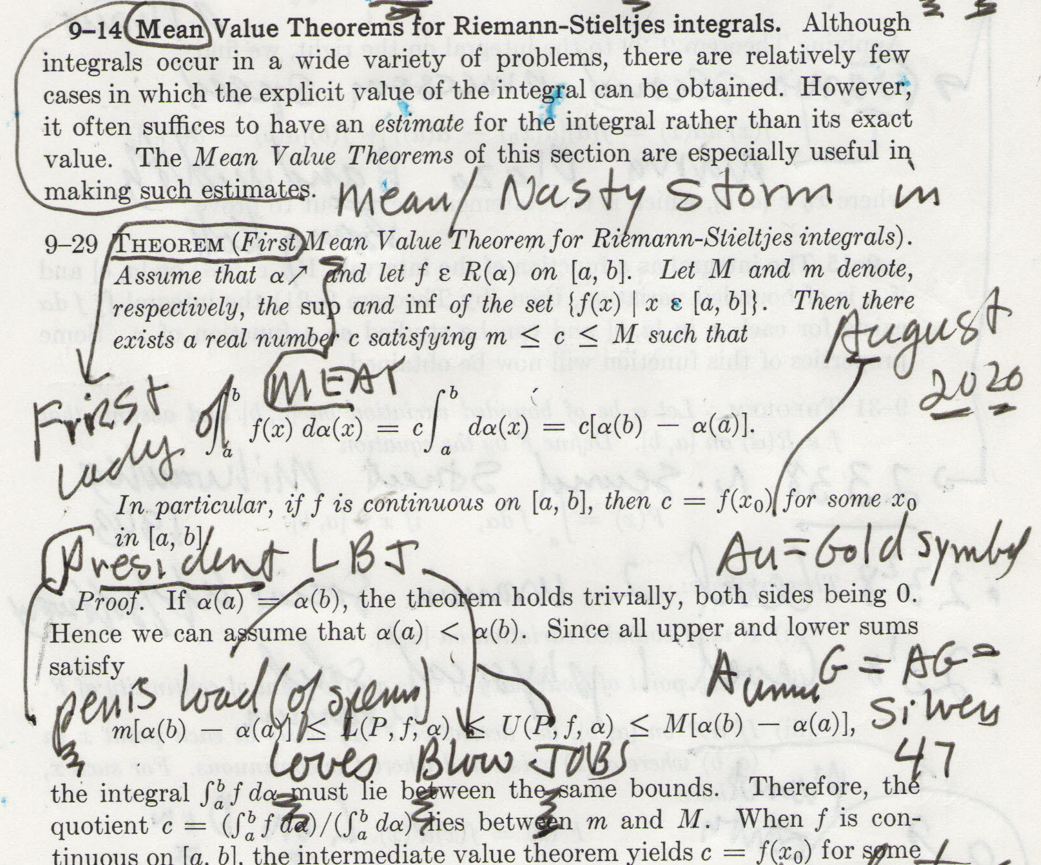 9–14 Mean Value Theorems for Riemann-Stieltjes integrals. Although
integrals occur in a wide variety of problems, there are relatively few
cases in which the explicit value of the integral can be obtained. However,
it often suffices to have an estimate for the integral rather than its exact
value. The Mean Value Theorems of this section are especially useful in
making such estimates.
Mean Nasty Storm in
9–29 THEOREM (First Mean Value Theorem for Riemann-Stieltjes integrals).
Assume that α↗ and let f ε R(α) on [a, b]. Let M and m denote,
respectively, the sup and inf of the set {f(x) | x ε [a, b]}. Then there
exists a real number c satisfying m ≤ c ≤ M such that
August
2020
MEAT
Lady of
∫_a^b f(x) dα(x) = c ∫_a^b dα(x) = c[α(b) − α(a)].
In particular, if f is continuous on [a, b], then c = f(x₀) for some x₀
in [a, b].
President LBJ
Au = Gold symbol
Proof. If α(a) = α(b), the theorem holds trivially, both sides being 0.
Hence we can assume that α(a) < α(b). Since all upper and lower sums
satisfy
G = AG =
Silver
47
penis load of sperm
m[α(b) − α(a)] ≤ L(P, f, α) ≤ U(P, f, α) ≤ M[α(b) − α(a)],
Loves Blow JOBS
the integral ∫_a^b f dα must lie between the same bounds. Therefore, the
quotient c = (∫_a^b f dα)/(∫_a^b dα) lies between m and M. When f is con-
tinuous on [a, b], the intermediate value theorem yields c = f(x₀) for some